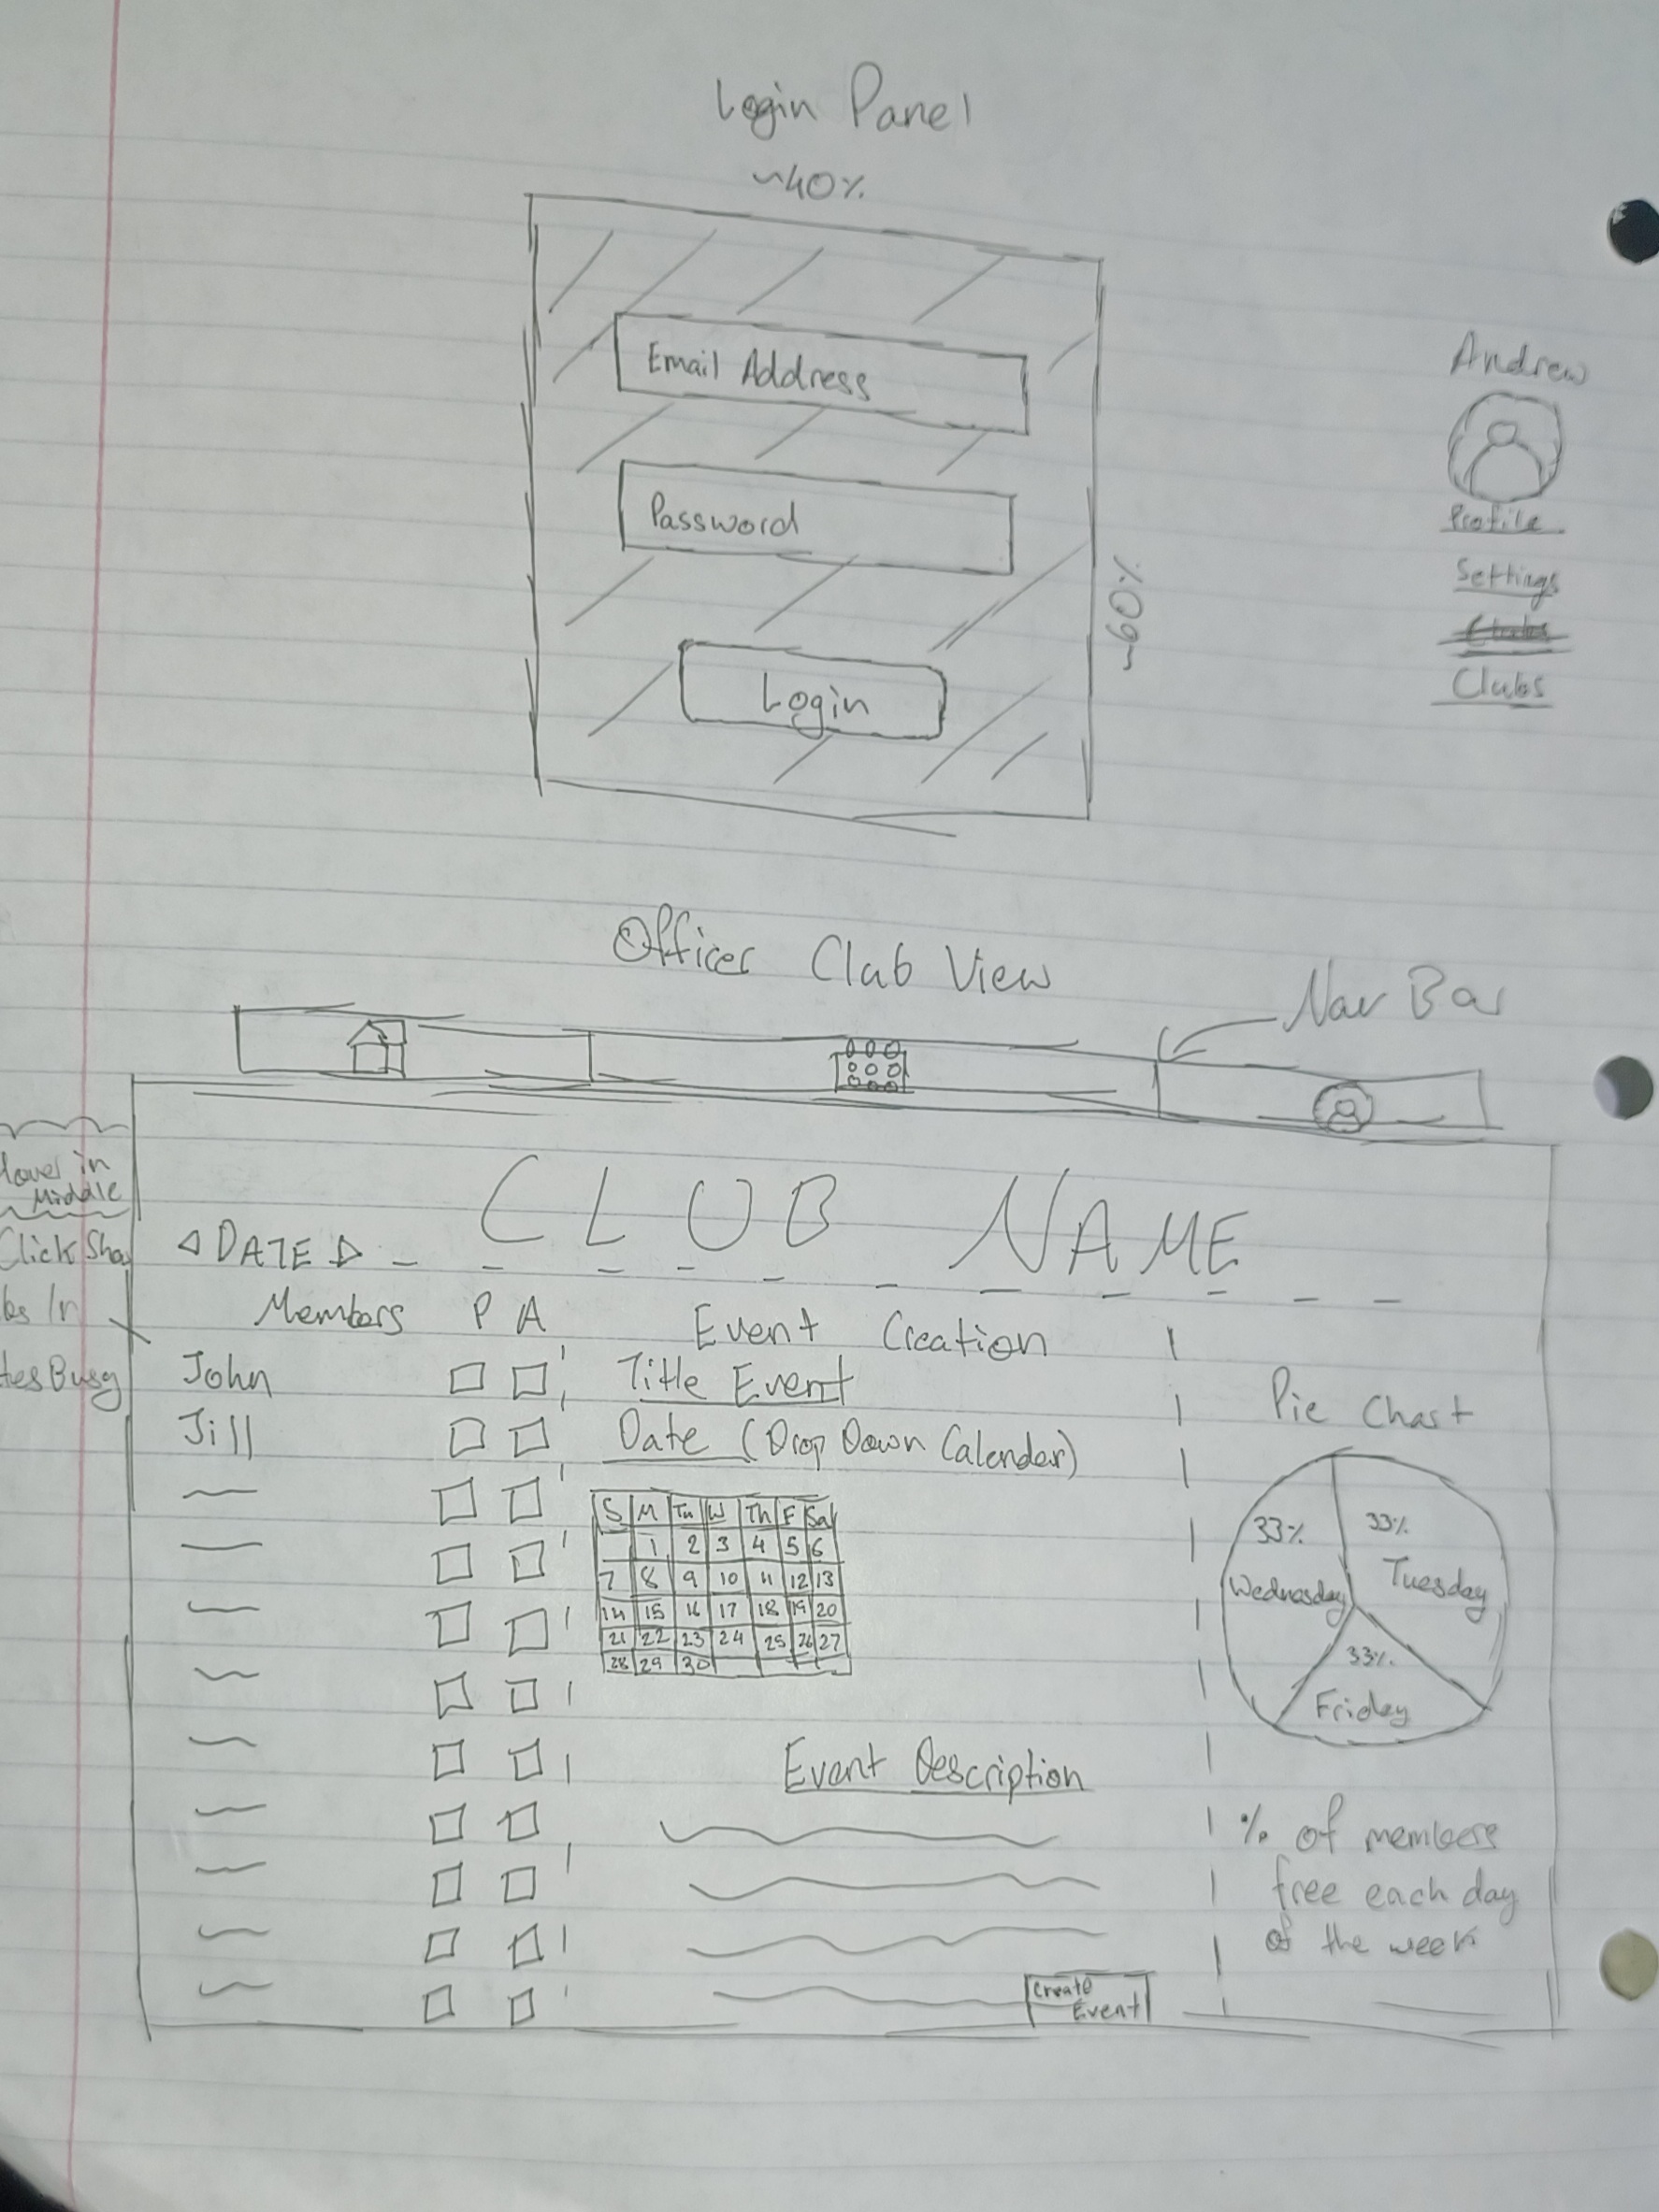 Login Panel
~40%
Email Address
Password
Login
~60%
Andrew
Profile
Settings
Clubs
Clubs
Officer Club View
Nav Bar
in
Middle
Click
In
Busy
CLUB NAME
◁ DATE ▷
Members P A
John
Jill
Event Creation
Title Event
Date (Drop Down Calendar)
S M Tu W Th F Sa
1 2 3 4 5 6
7 8 9 10 11 12 13
14 15 16 17 18 19 20
21 22 23 24 25 26 27
28 29 30
Event Description
Create
Event
Pie Chart
33% 33%
Wednesday Tuesday
33%
Friday
% of members
free each day
of the week